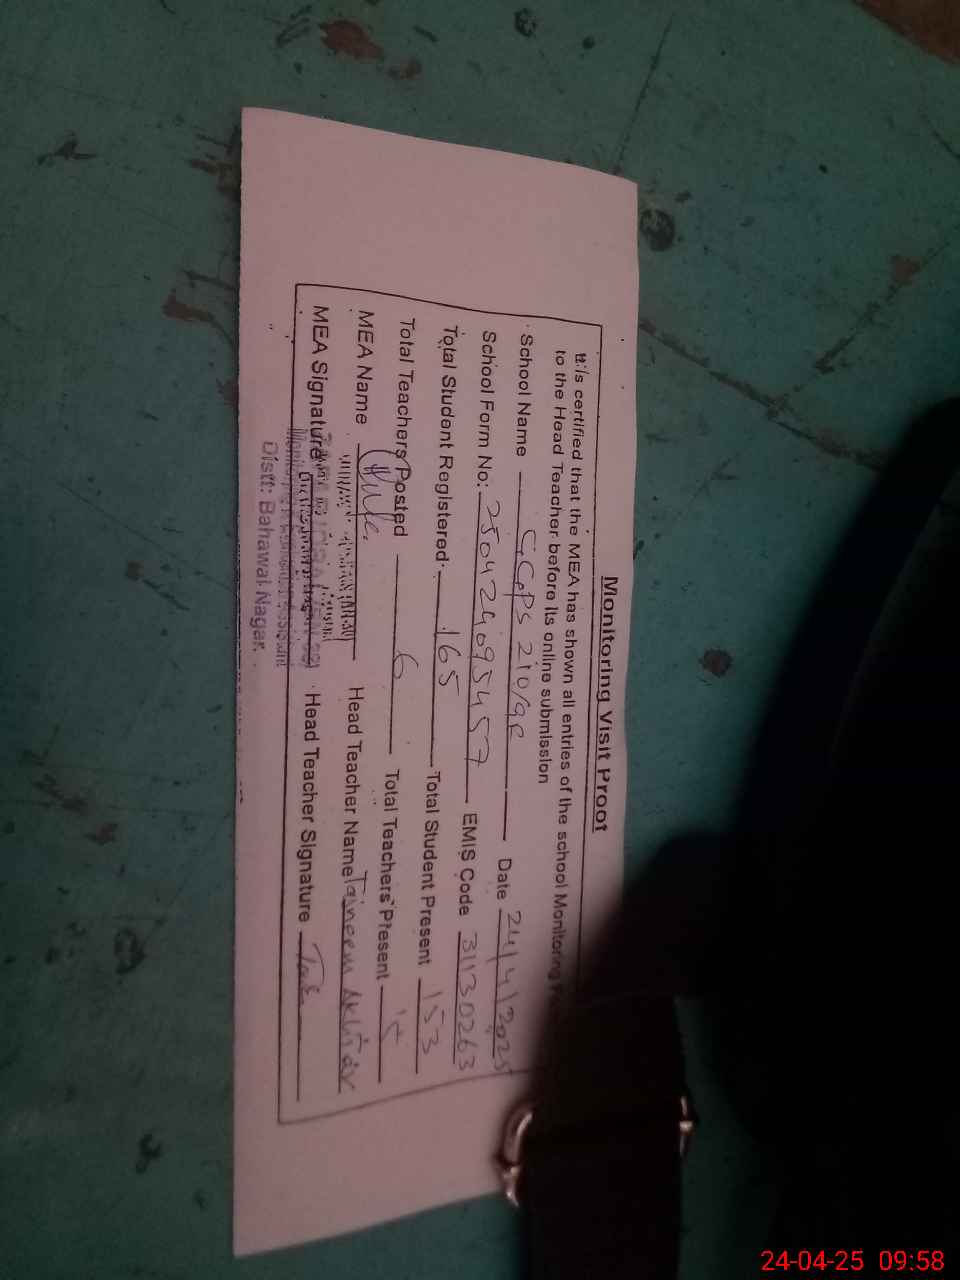 Monitoring Visit Proof
It is certified that the MEA has shown all entries of the school Monitoring
to the Head Teacher before its online submission
School Name GGPS 210/9R Date 24/4/2025
School Form No: 2504240995457 EMIS Code 31130263
Total Student Registered 165 Total Student Present 153
Total Teachers Posted 6 Total Teachers Present
MEA Name Head Teacher Name Tasneem Akhtar
MEA Signature Head Teacher Signature
Distt: Bahawal Nagar
24-04-25 09:58